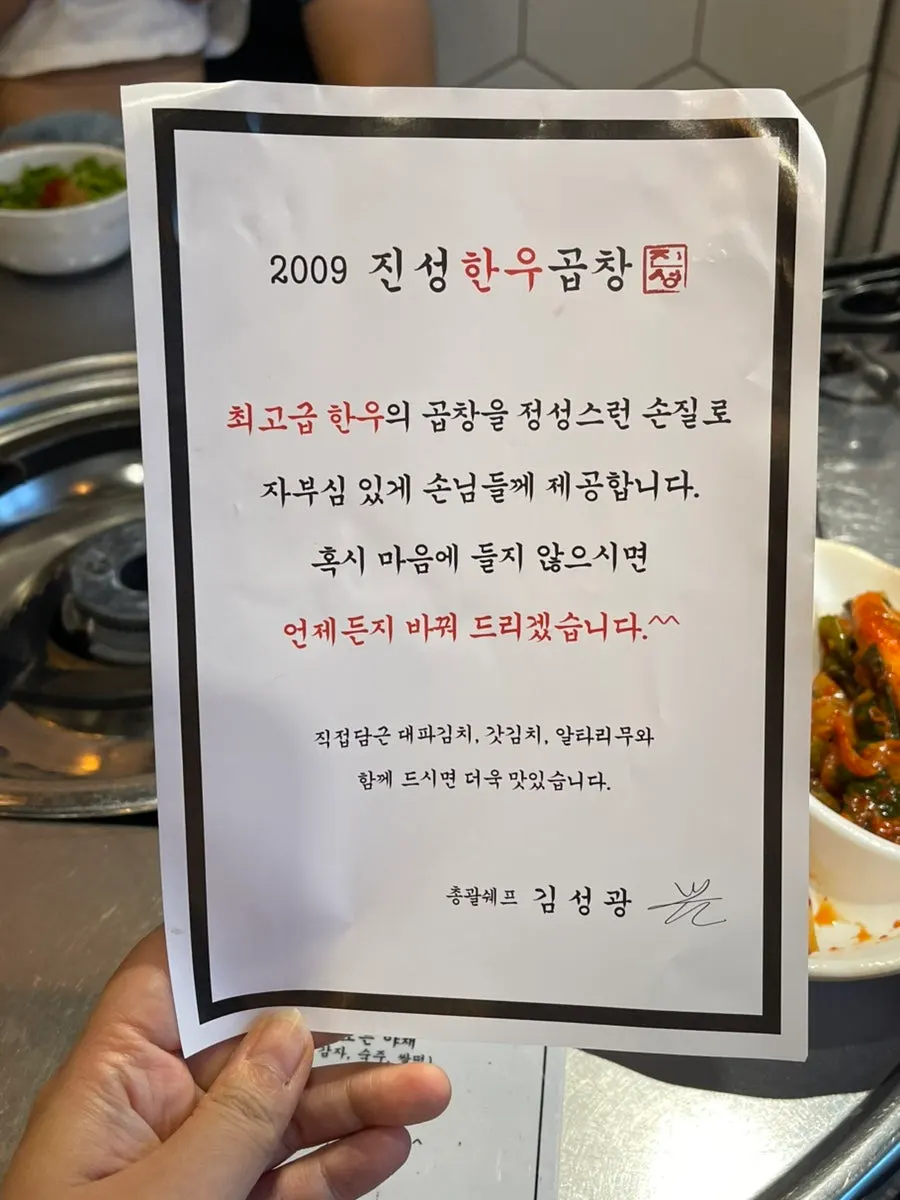 2009 진성한우곱창 진성
최고급 한우의 곱창을 정성스런 손질로
자부심 있게 손님들께 제공합니다.
혹시 마음에 들지 않으시면
언제든지 바꿔 드리겠습니다.^^
직접담근 대파김치, 갓김치, 알타리무와
함께 드시면 더욱 맛있습니다.
총괄쉐프 김성광
감자, 숙주, 쌀떡!